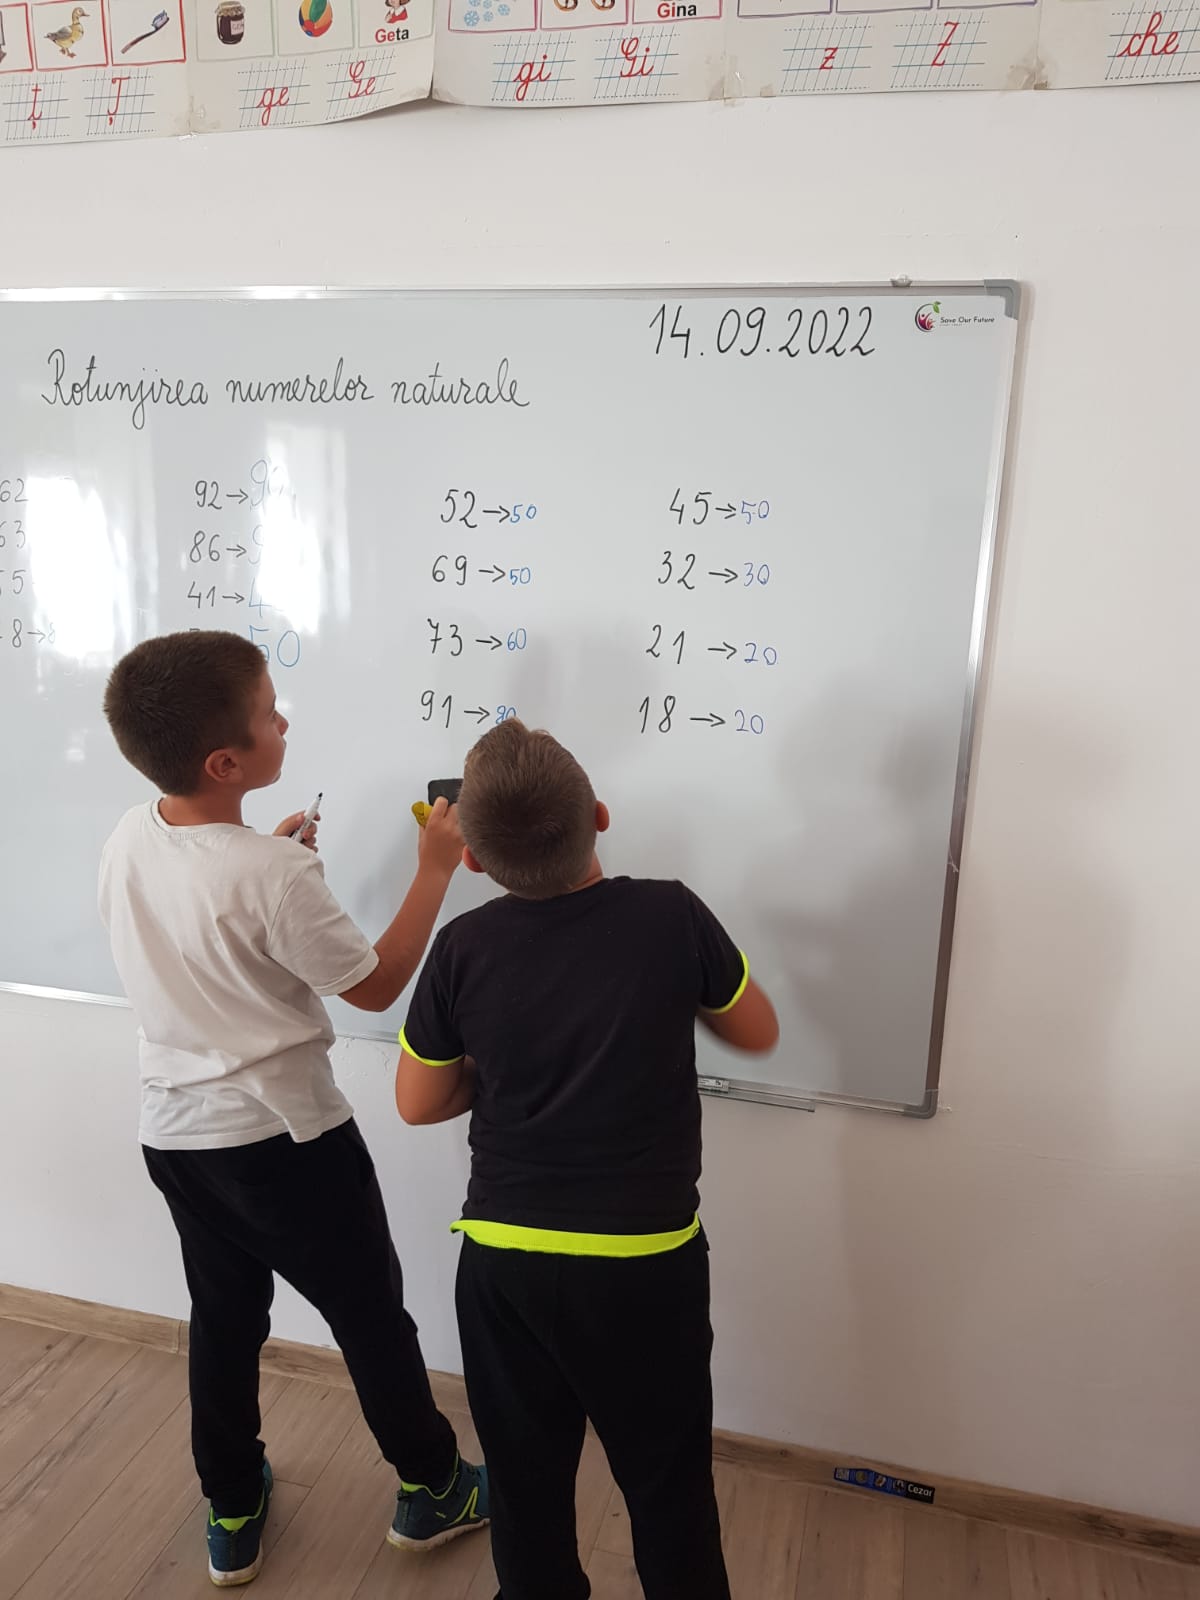 Geta
Gina
ț Ț
ge Ge
gi Gi
z Z
che
14.09.2022
Save Our Future
Rotunjirea numerelor naturale
62
63
55
8→
92→90
86→
41→4
50
52→50
69→50
73→60
91→80
45→50
32→30
21→20
18→20
Cezar